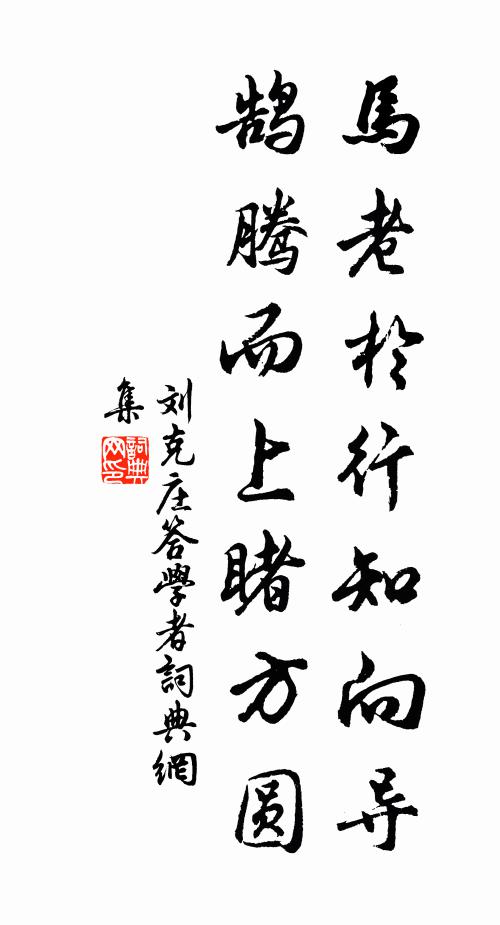 馬老於行知向导
鹄腾而上睹方圆
刘克庄答學者詞典網
集
詞典网印